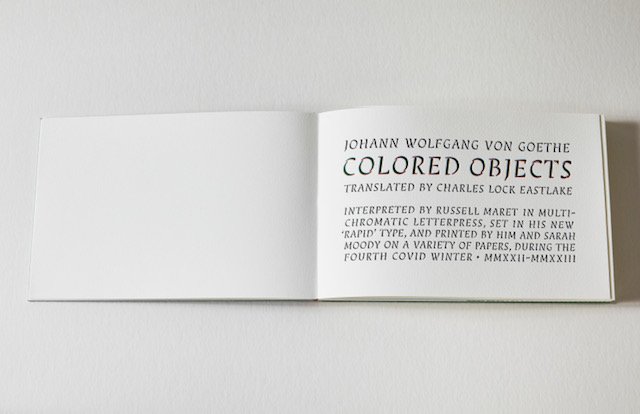 JOHANN WOLFGANG VON GOETHE
COLORED OBJECTS
TRANSLATED BY CHARLES LOCK EASTLAKE
INTERPRETED BY RUSSELL MARET IN MULTI-
CHROMATIC LETTERPRESS, SET IN HIS NEW
‘RAPID’ TYPE, AND PRINTED BY HIM AND SARAH
MOODY ON A VARIETY OF PAPERS, DURING THE
FOURTH COVID WINTER • MMXXII–MMXXIII